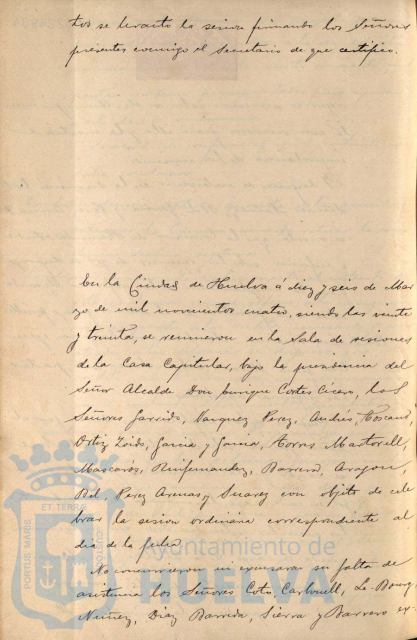 tos se levanto la sesion firmando los Señores
presentes conmigo el Secretario de que certifico.
En la Ciudad de Huelva á diez y seis de Mar
zo de mil novecientos cuatro, siendo las veinte
y treinta, se reunieron en la Sala de sesiones
de la Casa Capitular, bajo la presidencia del
Señor Alcalde Don Enrique Cortes Cicero, los
Señores Garrido, Vazquez Perez, Andrés Toscano,
Ortiz García y Garcia, Torres Martorell,
Mascarós, Barrera, Aragon,
Perez Arenas y Suarez con objeto de cele
brar la sesion ordinaria correspondiente al
dia de la fecha.
No concurrieron ni excusaron su falta de
asistencia los Señores Coto, Carbonell, Le-Bourg
Nuñez, Diaz Barrida, Sierra y Barrero ex-
ET TERRAE
PORTUS MARIS
Ayuntamiento de
HUELVA